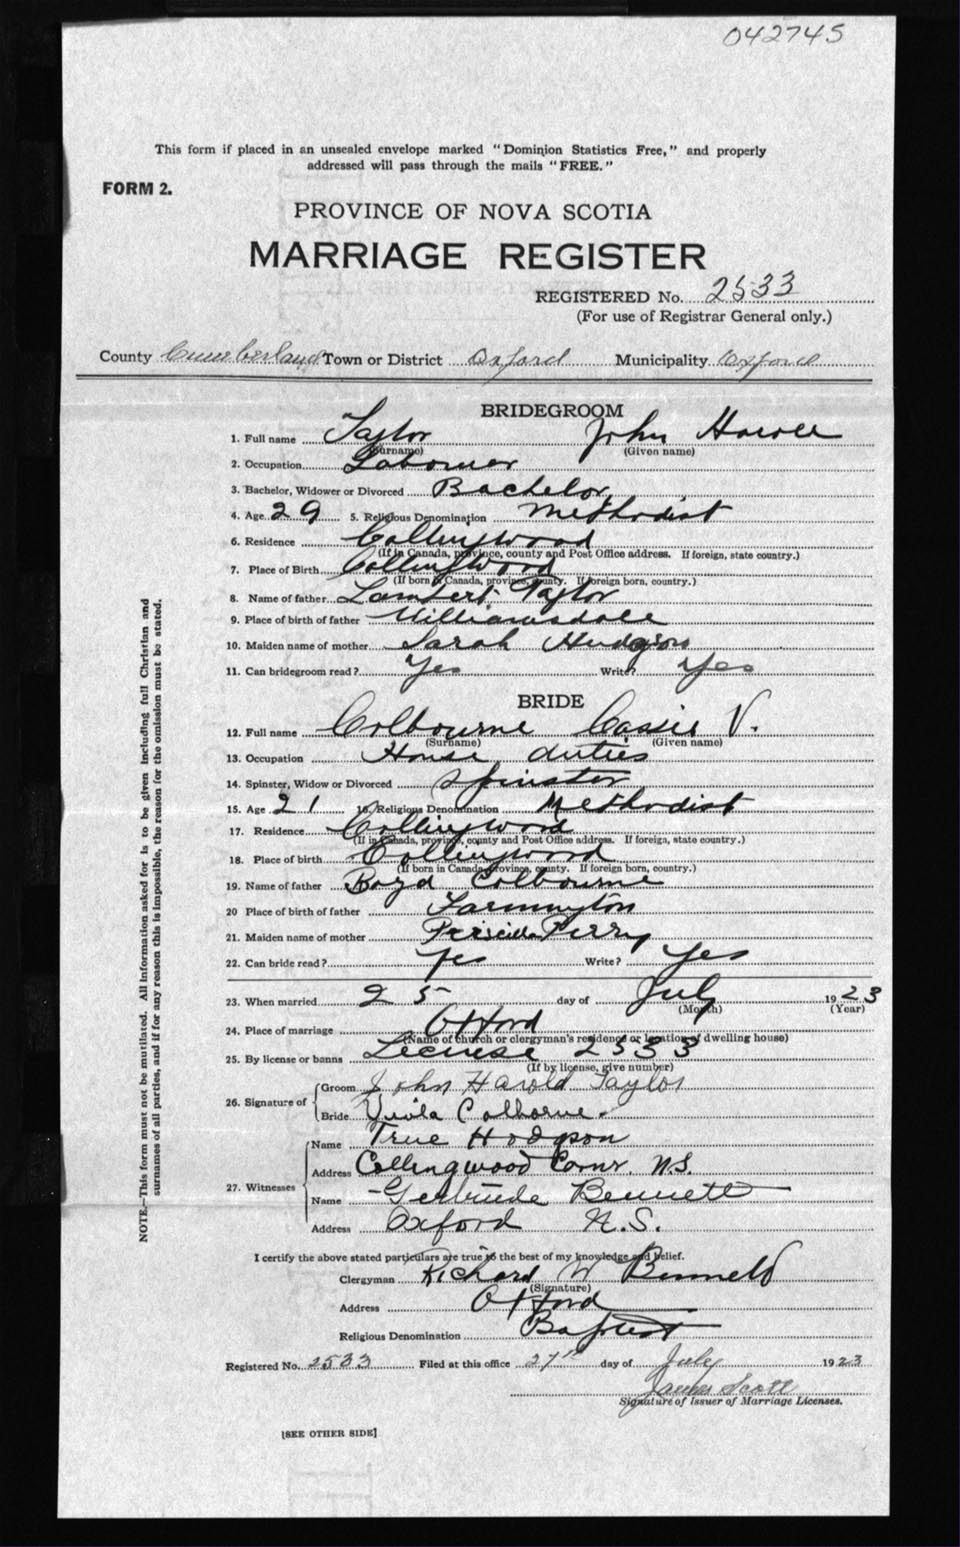 042745
This form if placed in an unsealed envelope marked "Dominion Statistics Free," and properly
addressed will pass through the mails "FREE."
FORM 2.
PROVINCE OF NOVA SCOTIA
MARRIAGE REGISTER
REGISTERED No. 2533
(For use of Registrar General only.)
County Cumberland Town or District Oxford Municipality Oxford
BRIDEGROOM
1. Full name Taylor John
(Surname) (Given name)
2. Occupation Labourer
3. Bachelor, Widower or Divorced Bachelor
4. Age 29 5. Religious Denomination Methodist
6. Residence Collingwood
(If in Canada, province, county and Post Office address. If foreign, state country.)
7. Place of Birth Collingwood
(If born in Canada, province, county. If foreign born, country.)
8. Name of father Lambert Taylor
9. Place of birth of father Williamsdale
10. Maiden name of mother Sarah Hudgson
11. Can bridegroom read? Yes Write? Yes
BRIDE
12. Full name Colbourne Cassie V.
(Surname) (Given name)
13. Occupation House duties
14. Spinster, Widow or Divorced Spinster
15. Age 21 16. Religious Denomination Methodist
17. Residence Collingwood
(If in Canada, province, county and Post Office address. If foreign, state country.)
18. Place of birth Collingwood
(If born in Canada province, county. If foreign born, country.)
19. Name of father Boyd Colbourne
20 Place of birth of father Farmington
21. Maiden name of mother Priscilla Perry
22. Can bride read? Yes Write? Yes
23. When married 25 day of July 1923
(Month) (Year)
24. Place of marriage Oxford
(Name of church or clergyman's residence or location of dwelling house)
25. By license or banns 2533
(If by license, give number)
26. Signature of Groom John Harold Taylor
Bride Colborne
27. Witnesses Name True Hodgson
Address Collingwood Corner N.S.
Name Gertrude Bennett
Address Oxford N.S.
I certify the above stated particulars are true to the best of my knowledge and belief.
Clergyman Richard W Bennett
(Signature)
Address Oxford
Religious Denomination Baptist
Registered No. 2533 Filed at this office 27th day of July 1923
James Scott
Signature of Issuer of Marriage Licenses.
[SEE OTHER SIDE]
NOTE.—This form must not be mutilated. All information asked for is to be given including full Christian and
surnames of all parties, and if for any reason this is impossible, the reason for the omission must be stated.